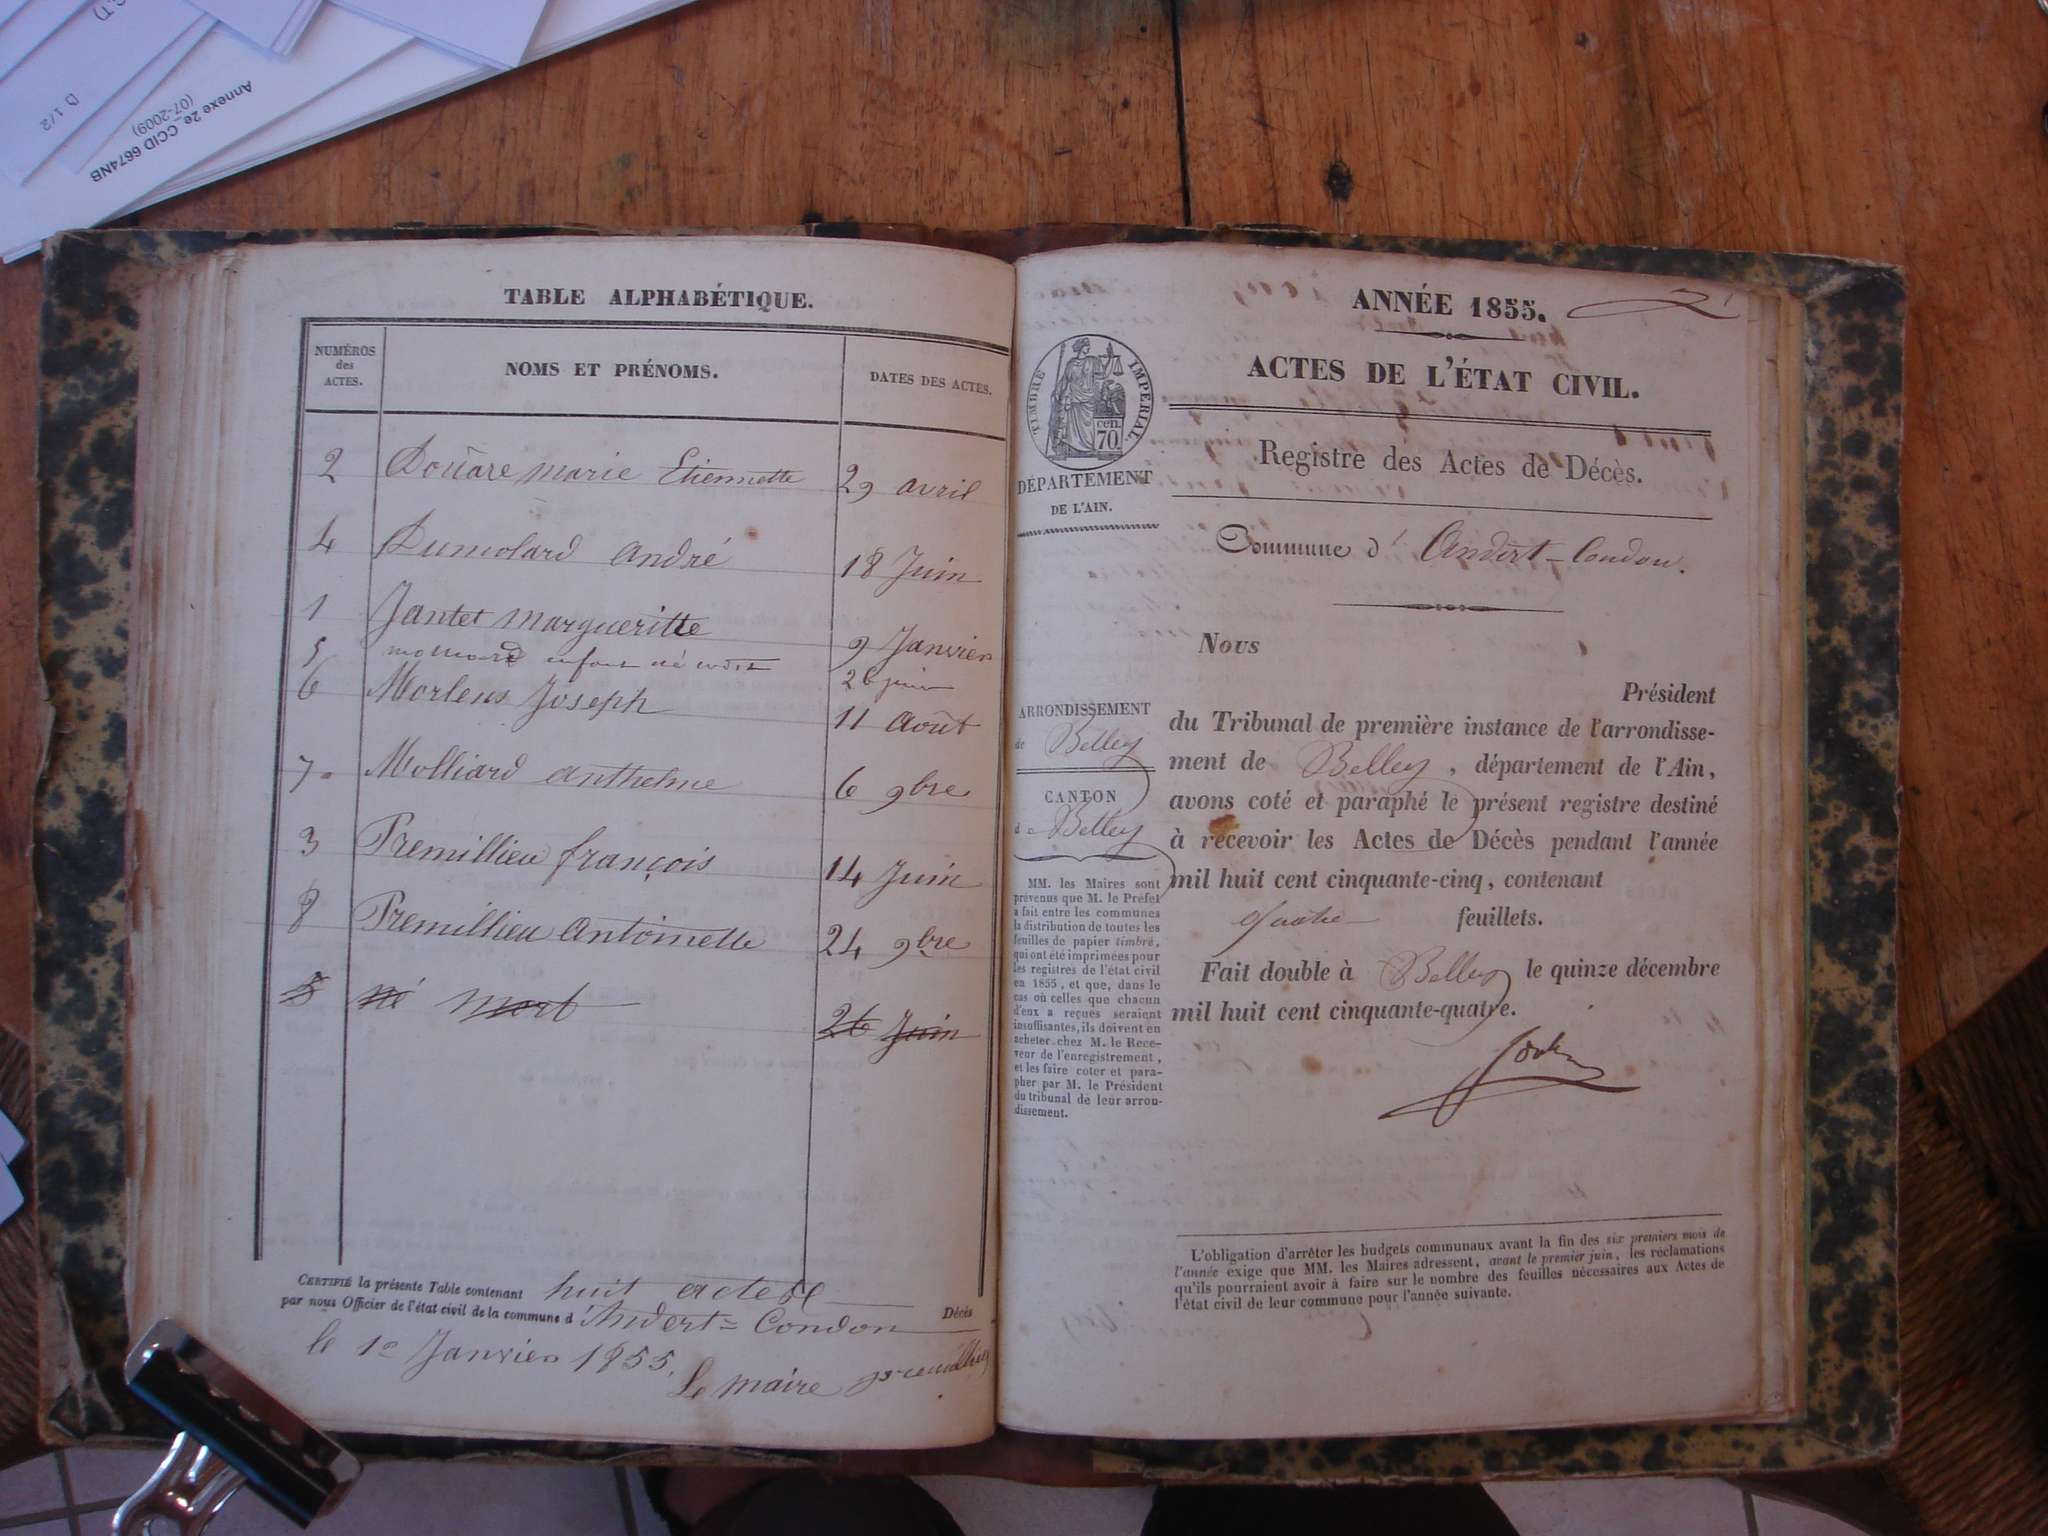 Annexe 2e CCID 6674NB
(07-2009)
D 1/2
TABLE ALPHABÉTIQUE.
NUMÉROS des ACTES.
NOMS ET PRÉNOMS.
DATES DES ACTES.
2 Doüare marie Etiennette 29 avril
4 Dumolard andré 18 Juin
1 Jantet margueritte 9 Janvier
5 enfant né mort 26 juin
6 Morlens Joseph 11 Août
7 Molliard anthelme 6 9bre
3 Premillieu françois 14 Juin
8 Premillieu Antoinette 24 9bre
5 né mort 26 Juin
CERTIFIÉ la présente Table contenant huit actes de Décès
par nous Officier de l'état civil de la commune d'Andert=Condon
le 1er Janvier 1855.
Le maire premillieu
ANNÉE 1855.
ACTES DE L'ÉTAT CIVIL.
TIMBRE IMPÉRIAL
70 cen.
DÉPARTEMENT
DE L'AIN.
Registre des Actes de Décès.
Commune d'Andert-Condon.
Nous
Président
du Tribunal de première instance de l'arrondisse-
ment de Belley, département de l'Ain,
avons coté et paraphé le présent registre destiné
à recevoir les Actes de Décès pendant l'année
mil huit cent cinquante-cinq, contenant
quatre feuillets.
Fait double à Belley le quinze décembre
mil huit cent cinquante-quatre.
ARRONDISSEMENT
de Belley
CANTON
de Belley
MM. les Maires sont
prévenus que M. le Préfet
a fait entre les communes
la distribution de toutes les
feuilles de papier timbré,
qui ont été imprimées pour
les registres de l'état civil
en 1855, et que, dans le
cas où celles que chacun
d'eux a reçues seraient
insuffisantes, ils doivent en
acheter chez M. le Rece-
veur de l'enregistrement,
et les faire coter et para-
pher par M. le Président
du tribunal de leur arron-
dissement.
L'obligation d'arrêter les budgets communaux avant la fin des six premiers mois de
l'année exige que MM. les Maires adressent, avant le premier juin, les réclamations
qu'ils pourraient avoir à faire sur le nombre des feuilles nécessaires aux Actes de
l'état civil de leur commune pour l'année suivante.